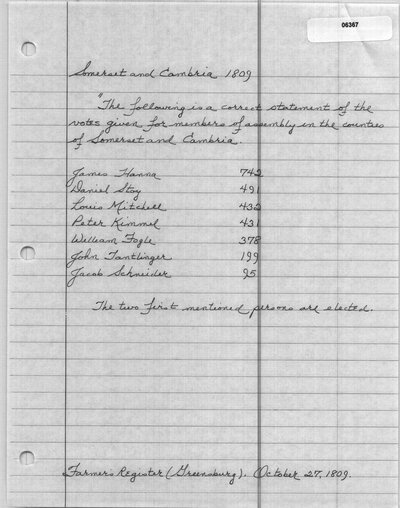 06367
Somerset and Cambria 1809
"The following is a correct statement of the
votes given for members of assembly in the counties
of Somerset and Cambria.
James Hanna 742
Daniel Stoy 491
Louis Mitchell 432
Peter Kimmel 431
William Fogle 378
John Tantlinger 199
Jacob Schneider 95
The two first mentioned persons are elected.
Farmers Register (Greensburg). October 27, 1809.